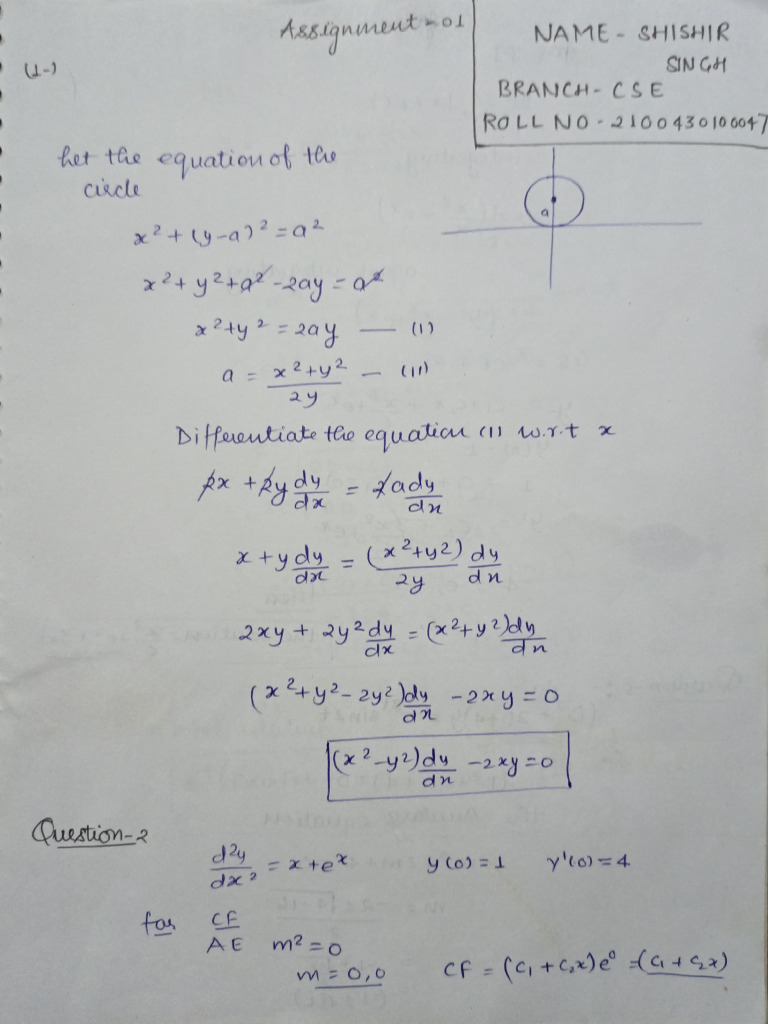 Assignment-01
NAME - SHISHIR
SINGH
BRANCH - CSE
ROLL NO - 2100430100047
(1-)
Let the equation of the
circle
a
x²+(y-a)²=a²
x²+y²+a²-2ay=a²
x²+y²=2ay — (1)
a = (x²+y²)/2y — (11)
Differentiate the equation (1) w.r.t x
2x + 2y dy/dx = 2a dy/dx
x + y dy/dx = (x²+y²)/2y dy/dx
2xy + 2y² dy/dx = (x²+y²) dy/dx
(x²+y²-2y²) dy/dx - 2xy = 0
(x²-y²) dy/dx - 2xy = 0
Question-2
d²y/dx² = x+eˣ y(0)=1 y'(0)=4
for CF
AE m²=0
m=0,0 CF = (C₁+C₂x)e⁰ = (C₁+C₂x)